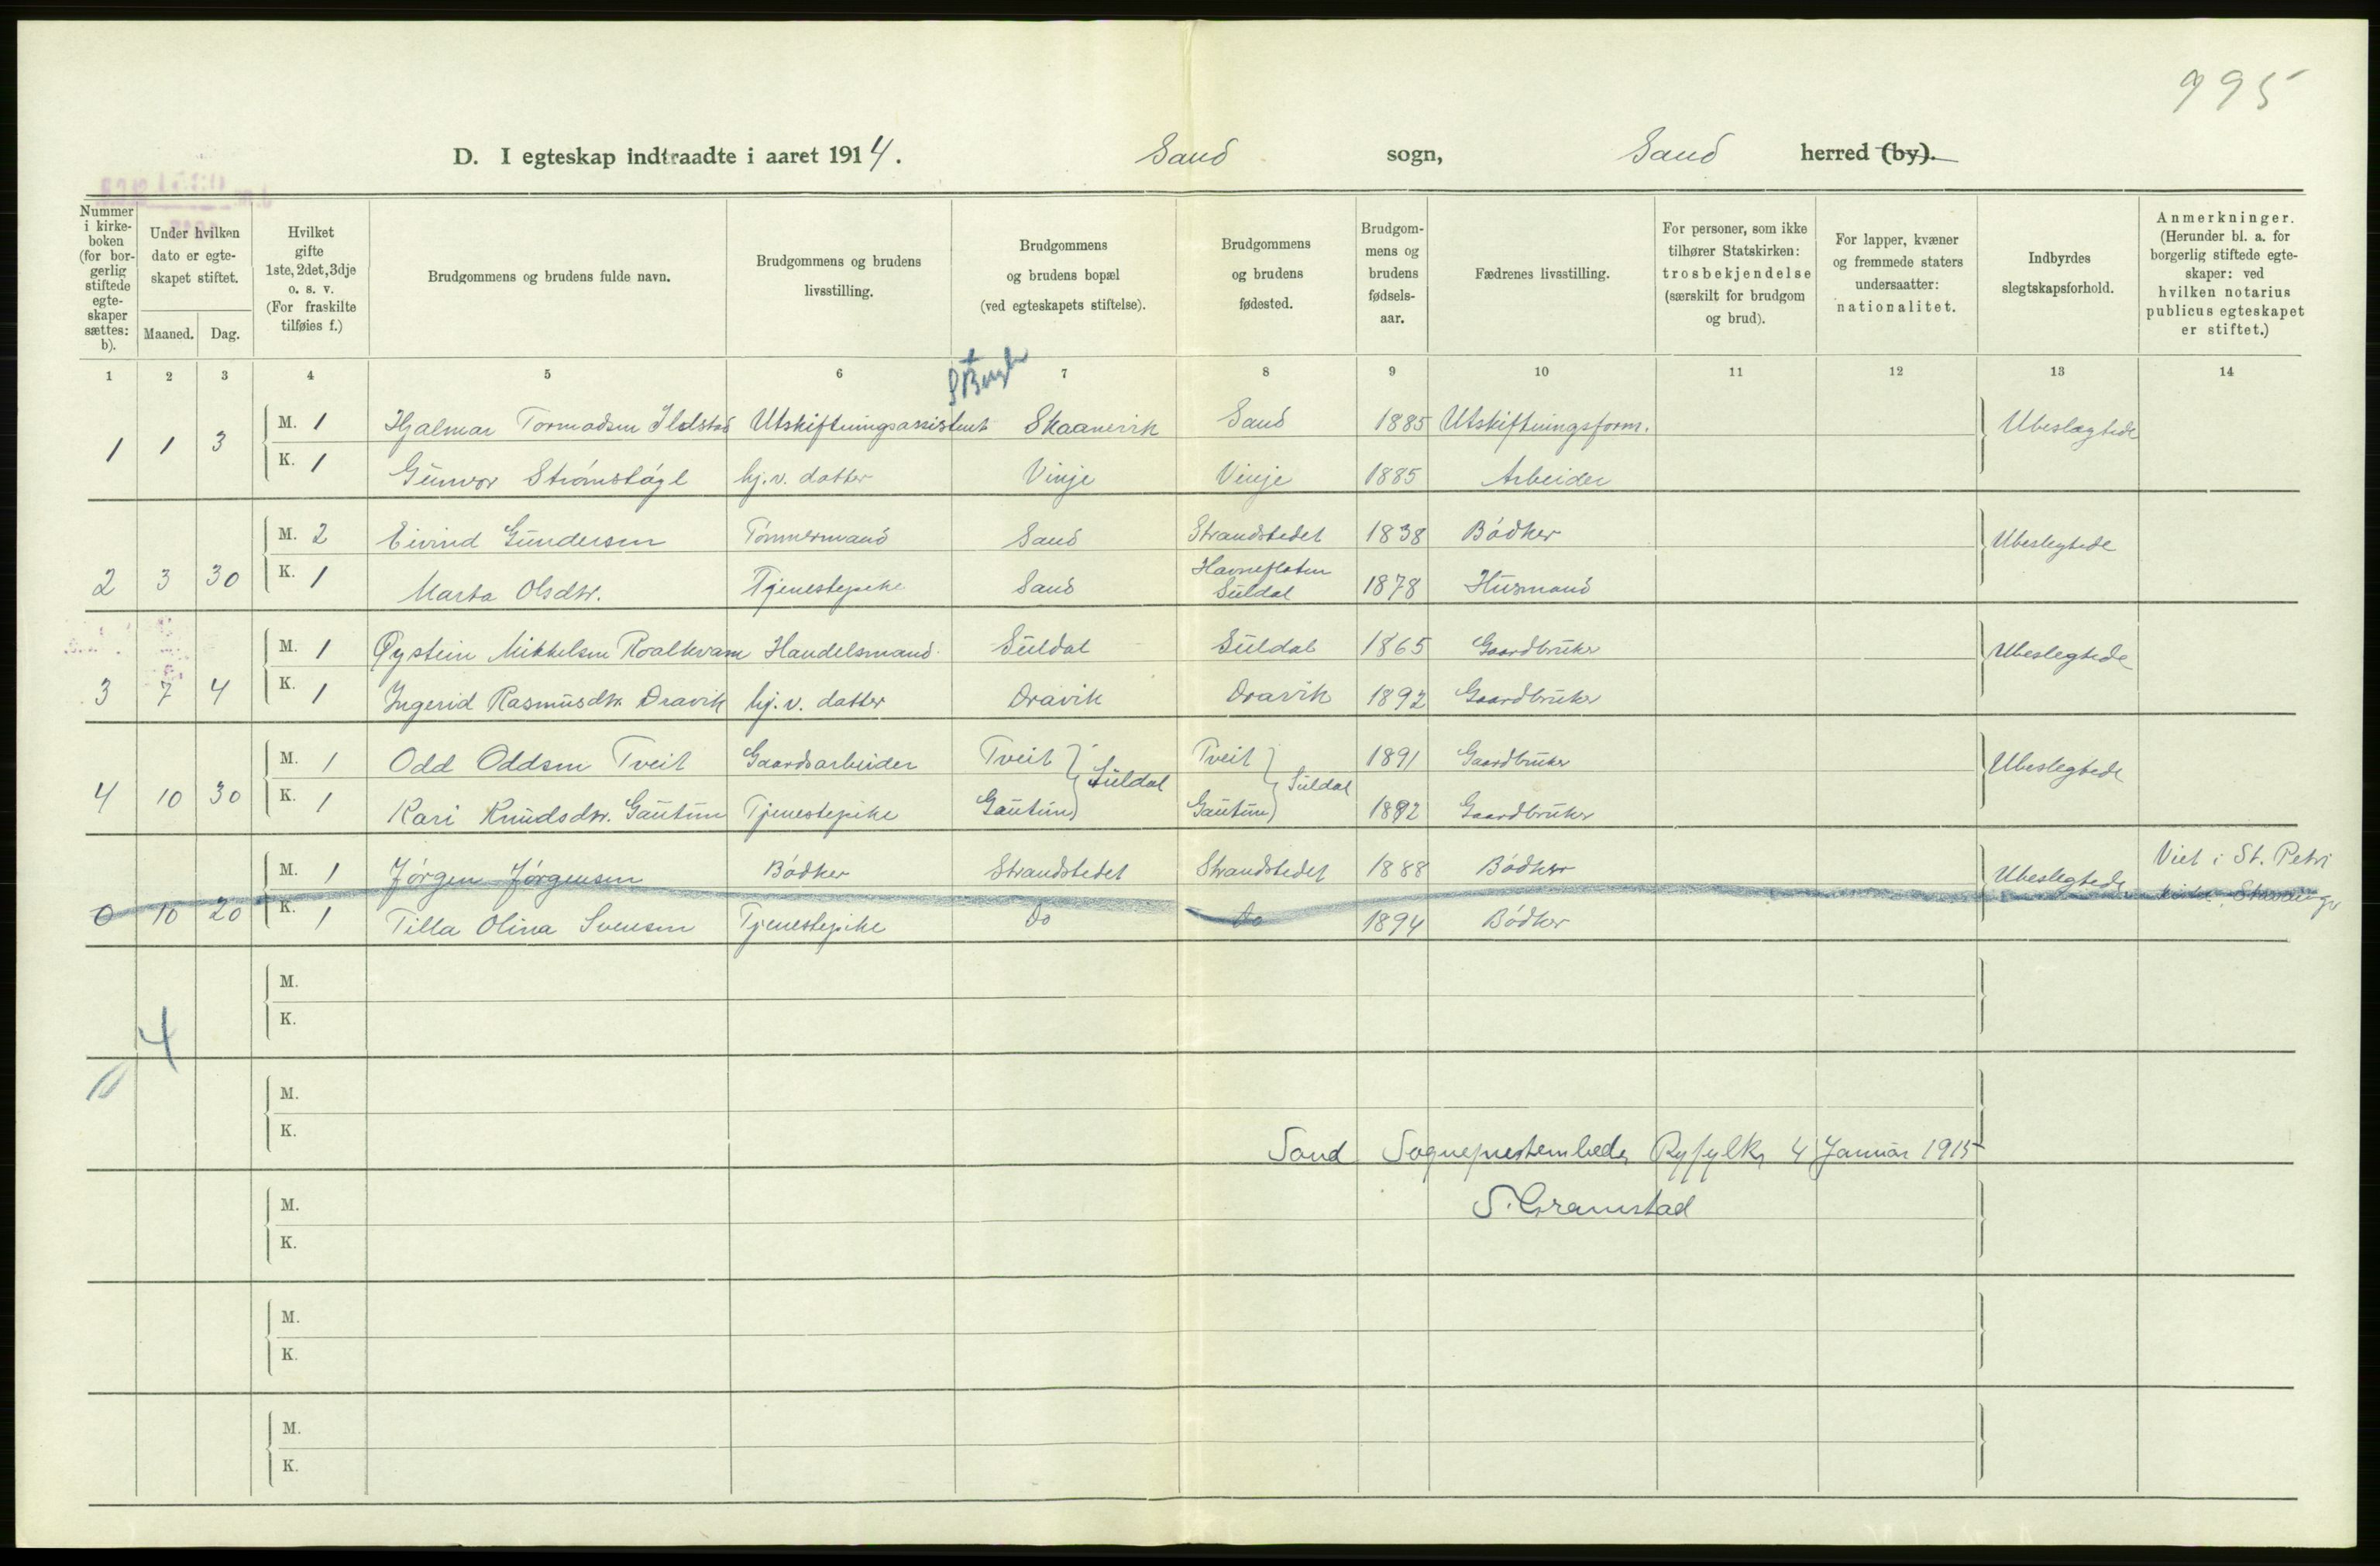 995
D. I egteskap indtraadte i aaret 1914. Sand sogn, Sand herred (by).
Nummer i kirkeboken (for borgerlig stiftede egteskaper sættes: b).
Under hvilken dato er egteskapet stiftet.
Maaned. Dag.
Hvilket gifte 1ste, 2det, 3dje o. s. v. (For fraskilte tilføies f.)
Brudgommens og brudens fulde navn.
Brudgommens og brudens livsstilling.
Brudgommens og brudens bopæl (ved egteskapets stiftelse).
Brudgommens og brudens fødested.
Brudgommens og brudens fødselsaar.
Fædrenes livsstilling.
For personer, som ikke tilhører Statskirken: trosbekjendelse (særskilt for brudgom og brud).
For lapper, kvæner og fremmede staters undersaatter: nationalitet.
Indbyrdes slegtskapsforhold.
Anmerkninger. (Herunder bl. a. for borgerlig stiftede egteskaper: ved hvilken notarius publicus egteskapet er stiftet.)
1 2 3 4 5 6 7 8 9 10 11 12 13 14
M. 1 Hjalmar Tormodsen Ilstad Utskiftningsassistent Skaanevik Sand 1885 Utskiftningsform. Ubeslægtede
1 1 3 K. 1 Gunvor Strømstøyl hj. v. datter Vinje Vinje 1885 Arbeider
M. 2 Eivind Gundersen Tømmermand Sand Strandstedet 1838 Bødker Ubeslegtede
2 3 30 K. 1 Marta Olsdtr. Tjenestepike Sand Suldal 1878 Husmand
M. 1 Øystein Mikkelsen Roalkvam Handelsmand Suldal Suldal 1865 Gaardbruker Ubeslegtede
3 7 4 K. 1 Ingerid Rasmusdtr. Dravik hj. v. datter Dravik Dravik 1892 Gaardbruker
M. 1 Odd Oddsen Tveit Gaardsarbeider Tveit } Suldal Tveit } Suldal 1891 Gaardbruker Ubeslegtede
4 10 30 K. 1 Kari Knudsdtr. Gautun Tjenestepike Gautun Gautun 1892 Gaardbruker
M. 1 Jørgen Jørgensen Bødker Strandstedet Strandstedet 1888 Bødker Ubeslegtede Viet i St. Petri
0 10 20 K. 1 Tilla Olina Svensen Tjenestepike Do Do 1894 Bødker kirke, Stavanger
M.
K.
4
M.
K.
Sand Sogneprestembede, Ryfylke, 4 Januar 1915
M. S. Gramstad
K.
M.
K.
M.
K.